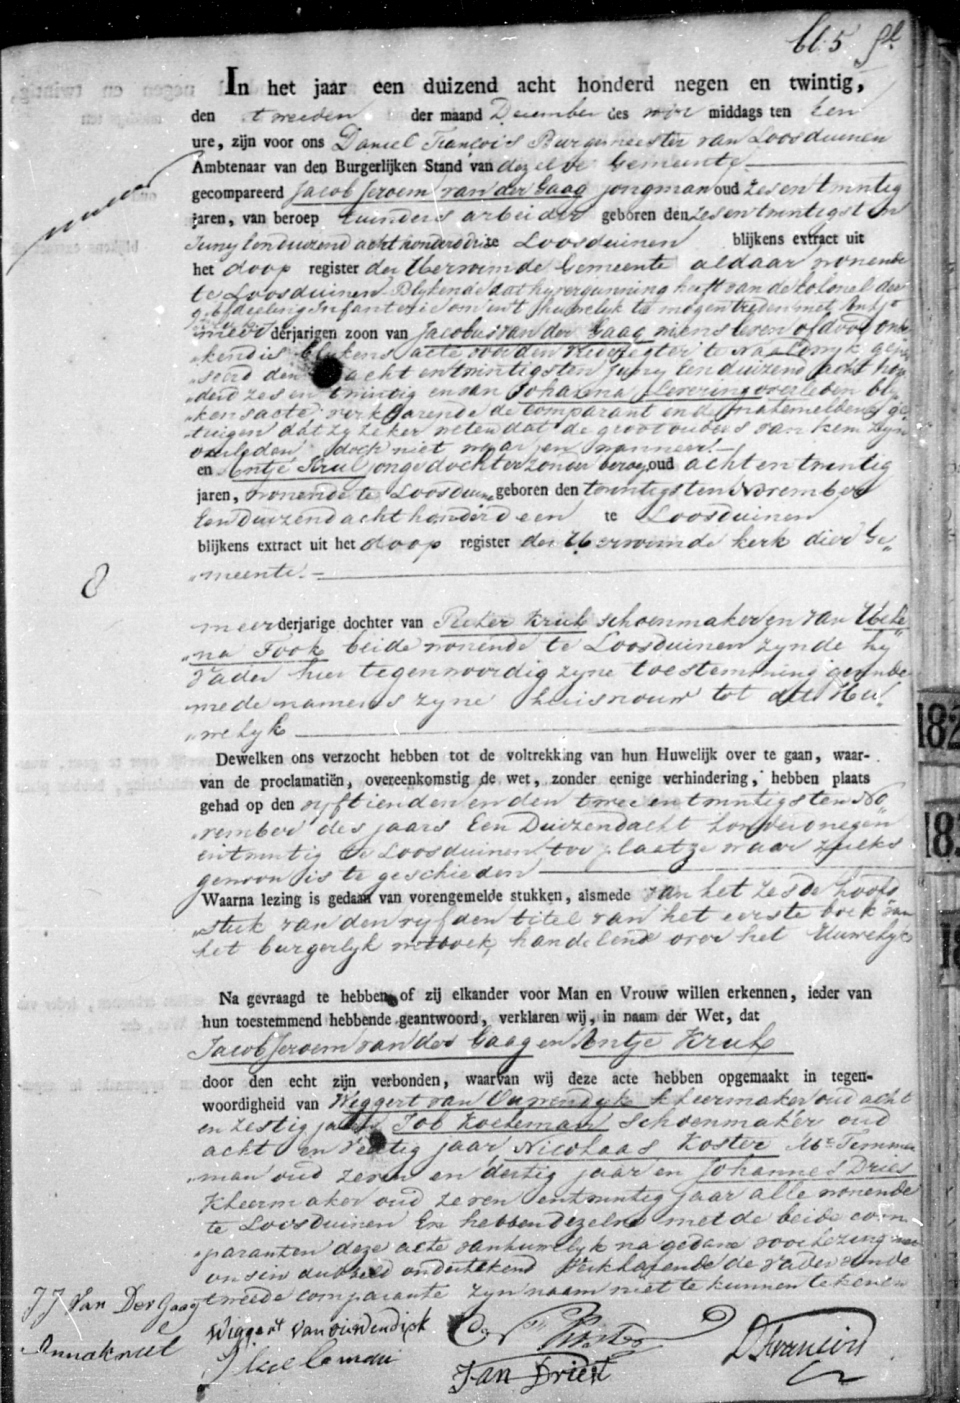 bl. 5
In het jaar een duizend acht honderd negen en twintig,
den tweeden der maand December des middags ten Een
ure, zijn voor ons Daniel François Burgemeester van Loosduinen
Ambtenaar van den Burgerlijken Stand van dezelve Gemeente
gecompareerd Jacob Jeroem van der Gaag jongman oud zes en twintig
jaren, van beroep tuinders arbeider geboren den zes en twintigsten
Juny Eenduizend acht honderd drie te Loosduinen blijkens extract uit
het doop register der Hervormde Gemeente aldaar wonende
te Loosduinen Blykende dat hy vergunning heeft van de Colonel der
afdeeling Infanterie om in't huwelyk te mogen treden met Antje
meerderjarigen zoon van Jacobus van der Gaag wiens leven of dood onbe
kend is blykens acte voor den Vrederegter te Naaldwyk gepas
seerd den acht en twintigsten Juny Eenduizend acht hon
derd zes en twintig en van Johanna Clevering overleden bly
kens acte, verklarende de Comparant en de natemelden ge
tuigen dat zy zeker weten dat de grootouders van hem zyn
overleden doch niet waar en wanneer
en Antje Krul jongedochter zonder beroep oud acht en twintig
jaren, wonende te Loosduinen geboren den twintigsten November
Eenduizend acht honderd een te Loosduinen
blijkens extract uit het doop register der Hervormde kerk dier Ge
meente.
meerderjarige dochter van Pieter Krul schoenmaker en van Hele
na Fook beide wonende te Loosduinen zynde hy
Vader hier tegenwoordig zyne toestemming gevende
mede namens zyne huisvrouw tot dit Hu
welyk
Dewelken ons verzocht hebben tot de voltrekking van hun Huwelijk over te gaan, waar-
van de proclamatiën, overeenkomstig de wet, zonder eenige verhindering, hebben plaats
gehad op den vyftienden en den twee en twintigsten No
vember des jaars Een Duizend acht honderd negen
en twintig te Loosduinen ter plaatze waar zulks
gewoon is te geschieden
Waarna lezing is gedaan van vorengemelde stukken, alsmede van het zesde hoofd
stuk van den vyfden titel van het eerste boek van
het burgerlyk wetboek, handelend over het Huwelyk
Na gevraagd te hebben of zij elkander voor Man en Vrouw willen erkennen, ieder van
hun toestemmend hebbende geantwoord, verklaren wij, in naam der Wet, dat
Jacob Jeroem van der Gaag en Antje Krul
door den echt zijn verbonden, waarvan wij deze acte hebben opgemaakt in tegen-
woordigheid van Wiggert van Ouwendyk kleermaker oud acht
en zestig jaar Job Koeleman Schoenmaker oud
acht en veertig jaar, Nicolaas Koster Mr Timmer
man oud zeven en dertig jaar en Johannes Dries
Kleermaker oud zeven en twintig jaar alle wonende
te Loosduinen En hebben dezelve met de beide com
paranten deze acte van huwelyk na gedane voorlezing met
ons in dubbeld ondertekend Verklarende de Vader van de
tweede comparante zyn naam niet te kunnen tekenen
JJ Van Der Gaag
Wiggert van ouwendijk
Anna krul
J koeleman
Jan Driest
DFrancois
182